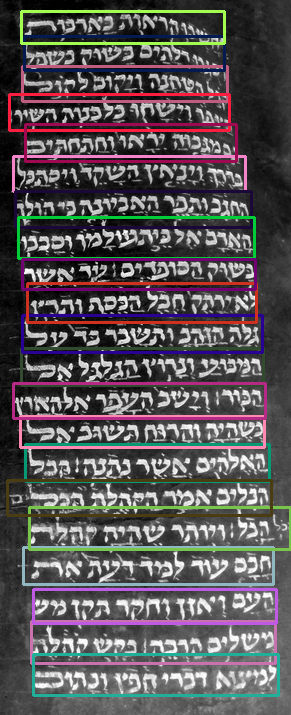 הראות בארבות
דלתים בשוק בשפל
הטחנה ויקום לקול
וישחו כל בנות השיר
מגבה יראו וחתחתים
בדרך וינאץ השקד ויסתבל
החגב ותפר האביונה כי הולך
האדם אל בית עולמו וסבבו
בשוק הסופדים׃ עד אשר
לא ירחק חבל הכסף ותרץ
גלת הזהב ותשבר כד על
המבוע ונרוץ הגלגל אל
הבור׃ וישב העפר אל הארץ
כשהיה והרוח תשוב אל
האלהים אשר נתנה׃ הבל
הבלים אמר הקהלת הכל
הבל׃ ויותר שהיה קהלת
חכם עוד למד דעת את
העם ואזן וחקר תקן מש
משלים הרבה׃ בקש קהלת
למצוא דברי חפץ וכתוב